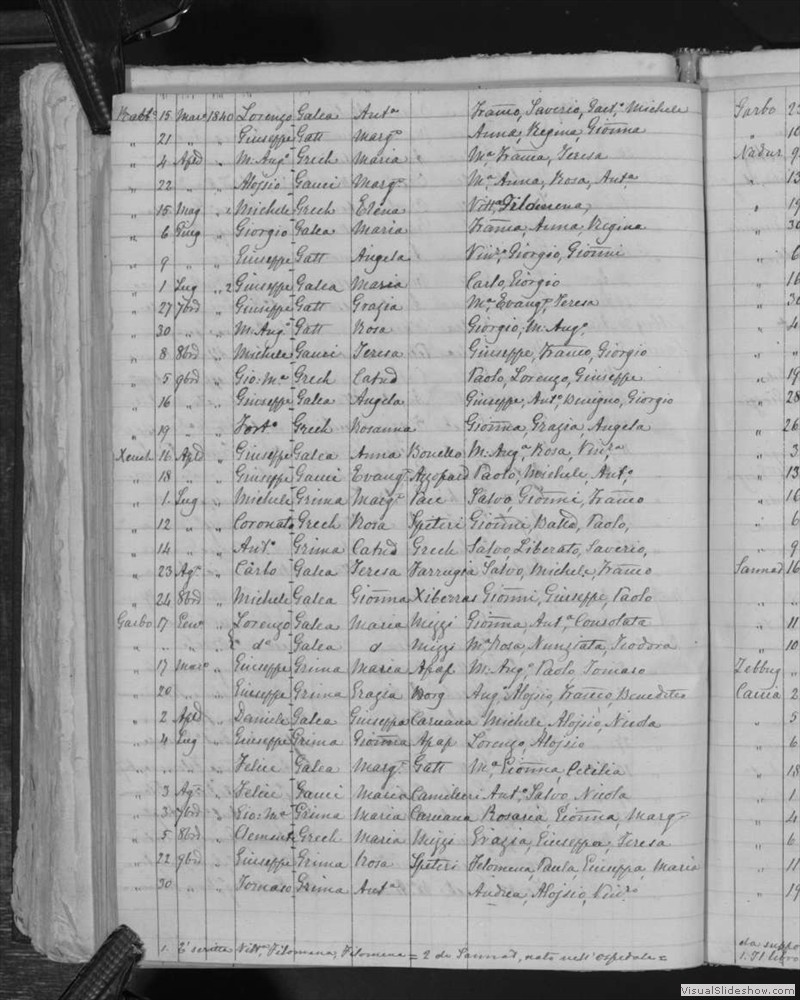 Rabto 15 Marzo 1840 Lorenzo Galea Anta Franco, Saverio, Gaeto, Michele
" 21 " " Giuseppe Gatt Margta Anna, Regina, Gionna
" 4 Apl " M: Ango Grech Maria Ma Franca, Teresa
" 22 " " Alojsio Gauci Margta Ma Anna, Rosa, Anta
" 15 Mag " 1 Michele Grech Elena Vitta Filomena,
" 6 Giug " Giorgio Galea Maria Franca, Anna, Regina
" 9 " " Giuseppe Gatt Angela Vinzo, Giorgio, Gionni
" 1 Lug " 2 Giuseppe Galea Maria Carlo, Giorgio
" 27 7bre " Giuseppe Gatt Grazia Ma, Evanga, Teresa
" 30 " " M: Ango Gatt Rosa Giorgio, M: Ango
" 8 8bre " Michele Gauci Teresa Giuseppe, Franco, Giorgio
" 5 9bre " Gio: Ma Grech Catna Paolo, Lorenzo, Giuseppe
" 16 " " Giuseppe Galea Angela Giuseppe, Anto, Benigno, Giorgio
" 19 " " Forto Grech Rosanna Gionna, Grazia, Angela
Xeuch 16 Apl " Giuseppe Galea Anna Bonello M: Anga, Rosa, Vinza
" 18 " " Giuseppe Gauci Evanga Azzopard Paolo, Michele, Anto
" 1 Lug " Michele Grima Margta Pace Salvo, Gionni, Franco
" 12 " " Coronato Grech Rosa Spiteri Gionni, Batta, Paolo,
" 14 " " Anto Grima Catna Grech Salvo, Liberato, Saverio,
" 23 Ago " Carlo Galea Teresa Farrugia Salvo, Michele, Franco
" 24 8bre " Michele Galea Gionna Xiberras Gionni, Giuseppe, Paolo
Garbo 17 Geno " Lorenzo Galea Maria Mizzi Gionna, Anta, Consolata
" " " " do Galea d Mizzi Ma Rosa, Nunziata, Teodora
" 17 Marzo " Giuseppe Grima Maria Apap M: Ango, Paolo, Tomaso
" 20 " " Giuseppe Grima Grazia Borg Ango, Alojsio, Franco, Benedetto
" 2 Apl " Daniele Galea Giuseppa Caruana Michele, Alojsio, Nicola
" 4 Lug " Giuseppe Grima Gionna Apap Lorenzo, Alojsio
" " " " Felice Galea Margta Gatt Ma, Gionna, Cecilia
" 3 Ago " Felice Gauci Maria Camilleri Anto, Salvo, Nicola
" 3 7bre " Gio: Ma Grima Maria Caruana Rosaria, Gionna, Marg
" 5 8bre " Clemente Grech Maria Mizzi Grazia, Giuseppa, Teresa
" 22 9bre " Giuseppe Grima Rosa Spiteri Filomena, Paula, Giuseppa, Maria
" 30 " " Tomaso Grima Anta Andrea, Alojsio, Vinzo
1. E' scritta Vitta, Filomena, Filomena = 2 da Sannat, nata nell'Ospedale =
Garbo
Nadur 9
" 13
" 19
" 30
" 6
" 16
" 4
" 19
" 28
" 26
" 3
" 13
" 16
" 6
" 9
Sannat 16
" 11
" 10
Zebbug
Caccia 2
" 5
" 6
" 18
" 1
" 4
" 6
" 11
" 19
da suppo
VisualSlideshow.com